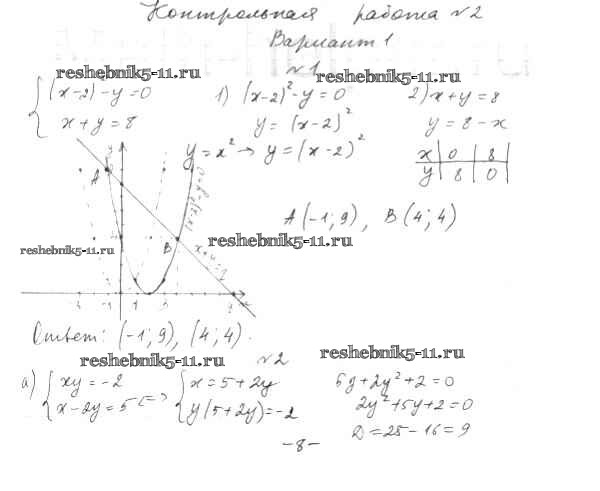 Контрольная работа №2
Вариант 1
№1
reshebnik5-11.ru
reshebnik5-11.ru
{(x-2)-y=0
x+y=8
1) (x-2)²-y=0
y=(x-2)²
y=x² → y=(x-2)²
2) x+y=8
y=8-x
x | 0 | 8
y | 8 | 0
A
B
A(-1;9), B(4;4)
reshebnik5-11.ru
reshebnik5-11.ru
Ответ: (-1;9), (4;4).
reshebnik5-11.ru
№2
reshebnik5-11.ru
а) {xy=-2
x-2y=5 <=>
{x=5+2y
y(5+2y)=-2
5y+2y²+2=0
2y²+5y+2=0
D=25-16=9
-8-